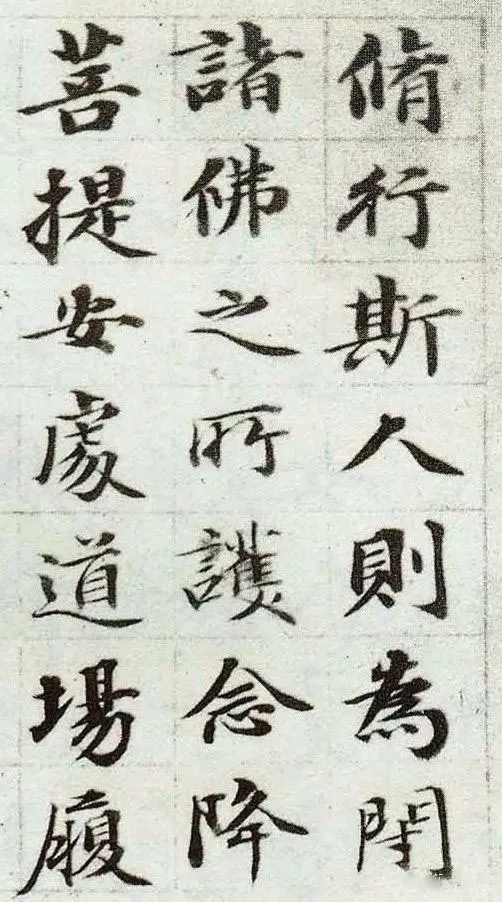 脩行斯人則為閑
諸佛之所護念降
菩提安處道場履